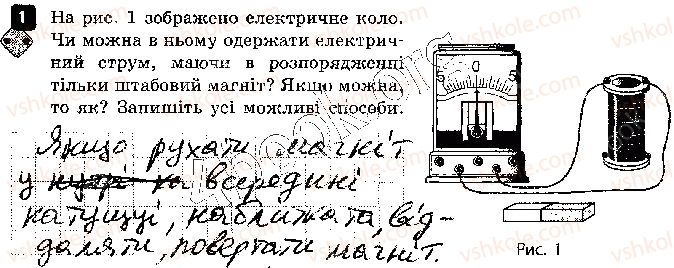 1 На рис. 1 зображено електричне коло.
Чи можна в ньому одержати електрич-
ний струм, маючи в розпорядженні
тільки штабовий магніт? Якщо можна,
то як? Запишіть усі можливі способи.
Якщо рухати магніт
у всередині
катущці, наближа та від-
даляти, повертати магніт.
5 0 5
Рис. 1
vshkole.com